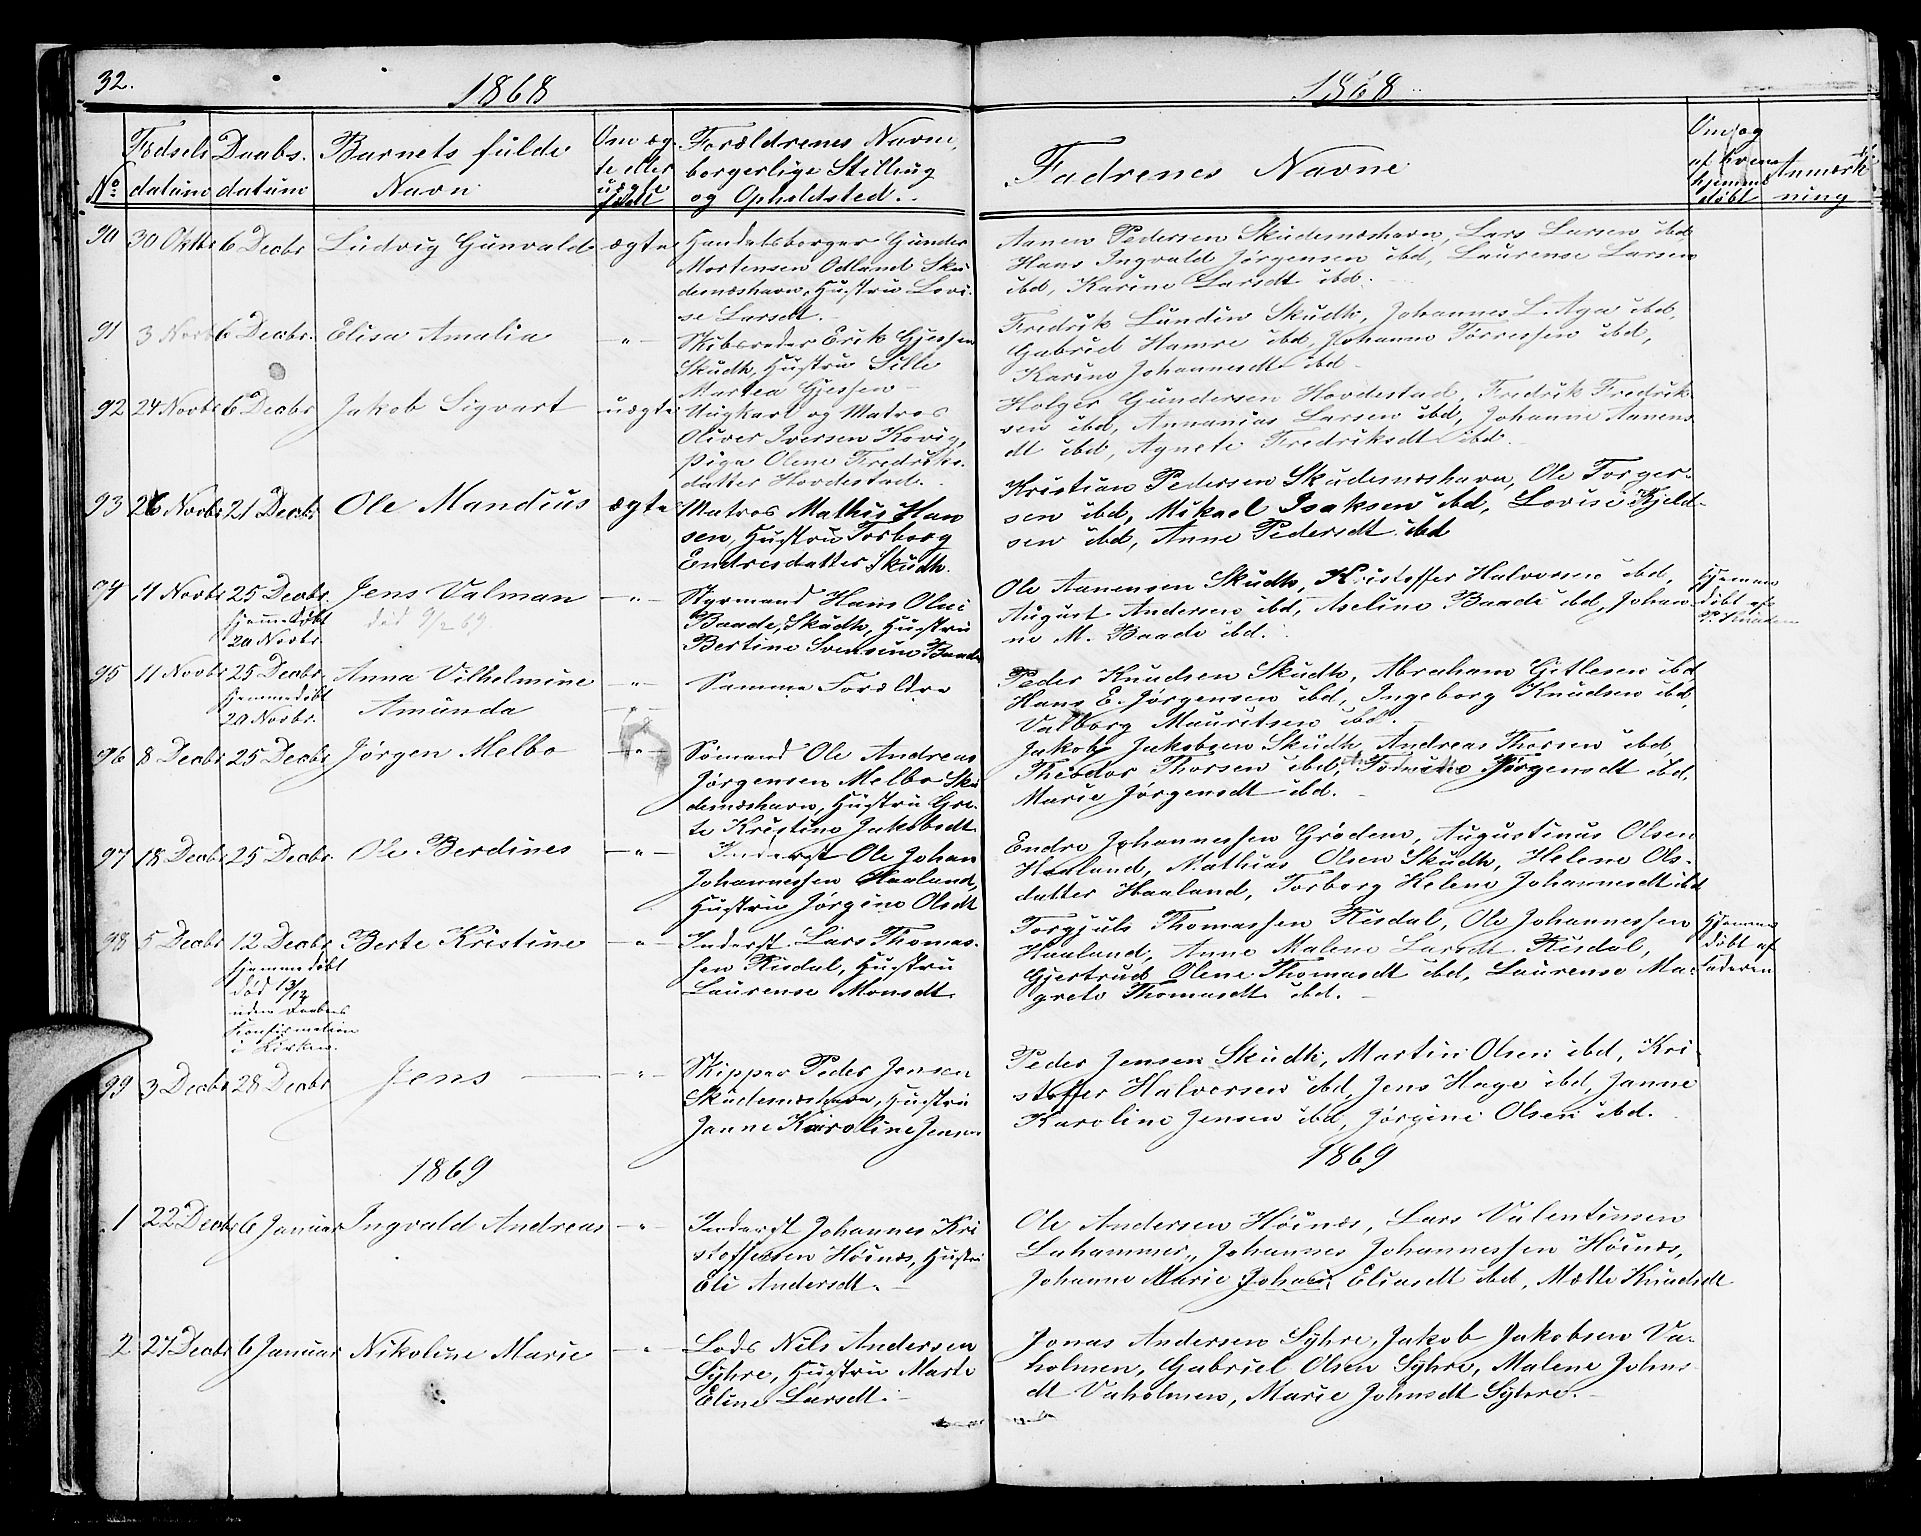 32.
1868
1868
No
Fødsels
datum
Daabs.
datum
Barnets fulde
Navn
Om æg
te eller
uægte
født
Forældrenes Navne,
borgerlige Stilling
og Opholdsted.
Fadrenes Navne
Om og
af hvem
hjemme
døbt
Anmærk
ning
90 30 Oktbr 6 Decbr Ludvig Gunvald ægte
Handelsborger Gunder
Mortensen Odland Sku
desneshavn, Hustru Lovi
se Larsdt.
Aanen Pedersen Skudesneshavn, Lars Larsen ibd
Hans Ingvald Jørgensen ibd, Laurense Larsen
ibd, Karine Larsdt ibd.
91 3 Novbr 6 Decbr. Elisa Amalia - " -
Skibsreder Erik Gjessen
Skudh, Hustru Sille
Martea Gjessen
Fredrik Lundin Skudh, Johannes L. Aga ibd,
Gabriel Hamre ibd, Johanne Tørressen ibd,
Karine Johannesdt ibd
92 24 Novbr 6 Decbr Jakob Sigvart uægte
Ungkarl og Matros
Oliver Iversen Kovig,
pige Olene Fredriks-
datter Hovdestad.
Holger Gundersen Hovdestad, Fredrik Fredrik
sen ibd, Annanias Larsen ibd, Johanne Aanens
dt ibd, Agnete Fredriksdt ibd.
93 26 Novbr 21 Decbr Ole Mandius ægte
Matros Mathis Han
sen, Hustru Torborg
Endresdatter Skudh.
Kristian Pedersen Skudesneshavn, Ole Torger-
sen ibd, Mikael Isaksen ibd, Lovise Kjeld-
sen ibd, Anne Pedersdt ibd
94 11 Novbr 25 Decbr. Jens Valman - " -
Hjemmedøbt
20 Novbr.
død 9/2 69.
Styrmand Hans Olai
Baade, Skudh, Hustru
Bertine Svensine Baade
Ole Aanensen Skudh, Kristoffer Halvorsen ibd,
August Andersen ibd, Aseline Baade ibd, Johan
ne M. Baade ibd.
Hjemme
døbt af
95 11 Novbr 25 Decbr. Anna Vilhelmine - " -
Hjemmedøbt
20 Novbr.
Amunda - " -
Samme Forældre
Peder Knudsen Skudh, Abraham Gitlesen ibd
Hans E. Jørgensen ibd, Ingeborg Knudsen ibd,
Valborg Mauritsen ibd.
96 8 Decbr 25 Decbr Jørgen Melbo - " -
Sømand Ole Andreas
Jørgensen Melbo Sku
desneshavn, Hustru Gre-
te Kristine Jakobsdt
Jakob Jakobsen Skudh, Andreas Thorsen ibd,
Theodor Thorsen ibd, Jørgensdt ibd,
Marie Jørgensdt ibd.
97 18 Decbr 25 Decbr. Ole Berdines - " -
Inderst Ole Johan
Johannessen Haaland,
Hustru Jørgine Olsdt
Endre Johannessen Grødem, Augustinus Olsen
Haaland, Mathias Olsen Skudh, Helene Ols-
datter Haaland, Torborg Helene Johannesdt ibd
98 5 Decbr 12 Decbr Berte Kristine - " -
Hjemmedøbt
død 13/12
uden Daabens
Konfirmation
i Kirken.
Inderst Lars Thomas-
sen Risdal, Hustru
Laurense Monsdt.
Torgjuls Thomassen Risdal, Ole Johannessen
Haaland, Anne Malene Larsdt Risdal,
Gjertrud Olene Thomasdt ibd, Laurense Ma-
grete Thomasdt ibd.
Hjemme
døbt af
Faderen
99 3 Decbr 28 Decbr Jens - " -
Skipper Peder Jensen
Skudesneshavn, Hustru
Janne Karoline Jensen
Peder Jensen Skudh, Martin Olsen ibd, Kri-
stoffer Halvorsen ibd, Jens Hage ibd, Janne
Karoline Jensen ibd, Jørgine Olsen ibd.
1869
1869
1 22 Decbr 6 Januar Ingvald Andreas - " -
Inderst Johannes Kri
stoffersen Høines, Hustru
Eli Andersdt.
Ole Andersen Høines, Lars Valentinsen
Lahammer, Johannes Johannessen Høines,
Johanne Marie Johan Eliasdt ibd, Mette Knudsdt
2 27 Decbr 6 Januar Nikoline Marie - " -
Lods Nils Andersen
Syhre, Hustru Marte
Eline Larsdt.
Jonas Andersen Syhre, Jakob Jakobsen Va-
holmen, Gabriel Olsen Syhre, Malene Johns
dt Vaholmen, Marie Johnsdt Syhre.